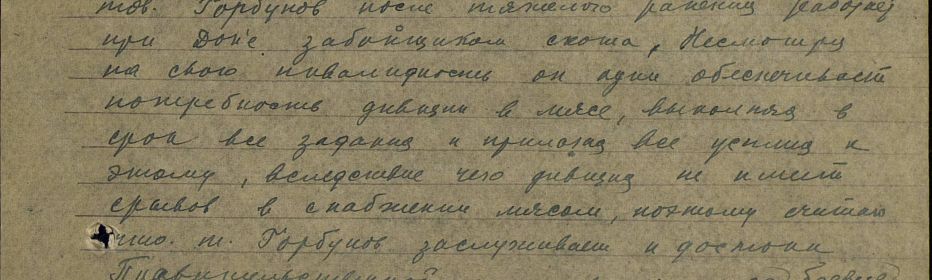 тов. Горбунов после тяжелого ранения работает
при ДОП'е забойщиком скота, Несмотря
на свою инвалидность он один обеспечивает
потребность дивизии в мясе, выполняя в
срок все задания и прилагая все усилия к
этому, вследствие чего дивизия не имеет
срывов в снабжении мясом, поэтому считаю
что т. Горбунов заслуживает и достоин
Правительственной